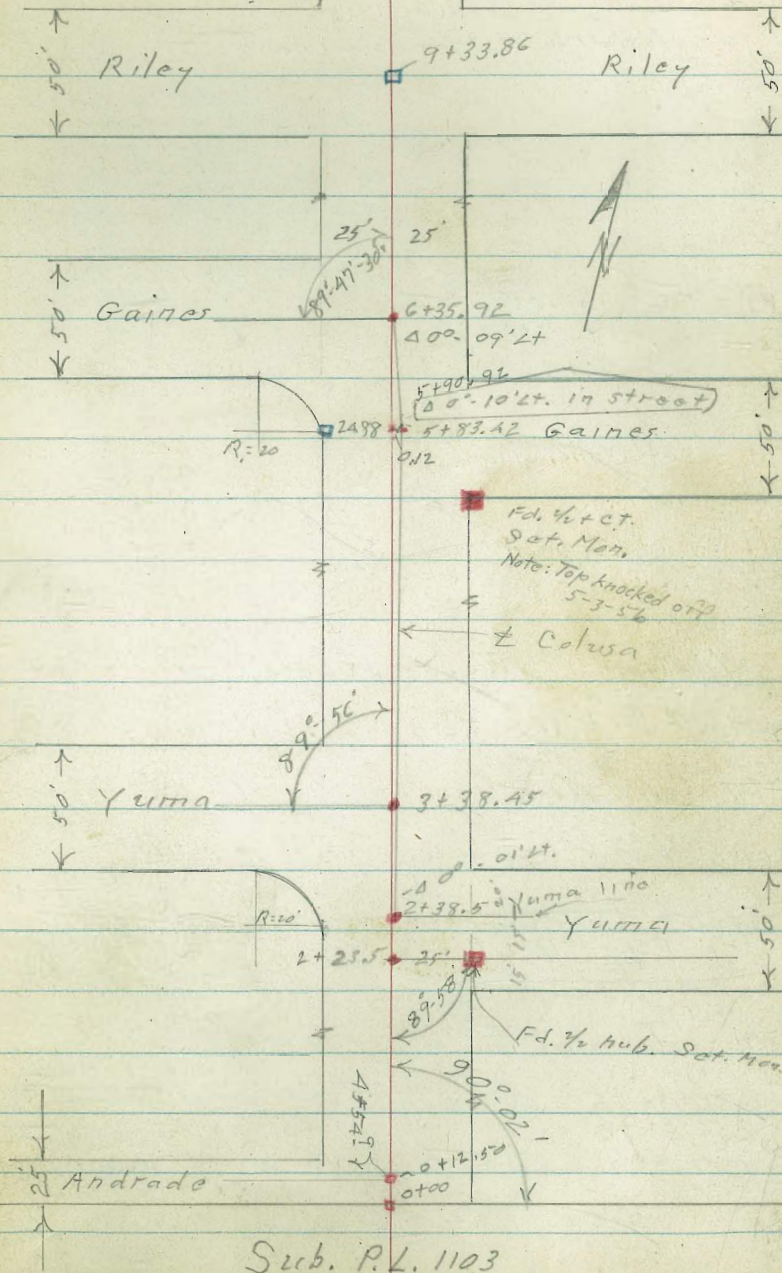 50'
Riley
9+33.86
Riley
50'
25'
25'
89°-47'-30"
50'
Gaines
6+35.92
Δ 0°-09' Lt
5+90.92
(Δ 0°-10' Lt. in street)
R=20
24.98
5+83.42
Gaines
0.12
50'
Fd. 2/2 + c.t.
Set. Mon.
Note: Top knocked off
5-3-56
℄ Colusa
89°-56'
50'
Yuma
3+38.45
Δ 0°-01' Lt.
2+38.5
20'
Yuma line
R=20'
15'
Yuma
50'
2+23.5
25'
15'
89°-58'
Fd. 2/2 Hub. Set. Mon.
25'
Andrade
0+12.50
0+00
Sub. P.L. 1103